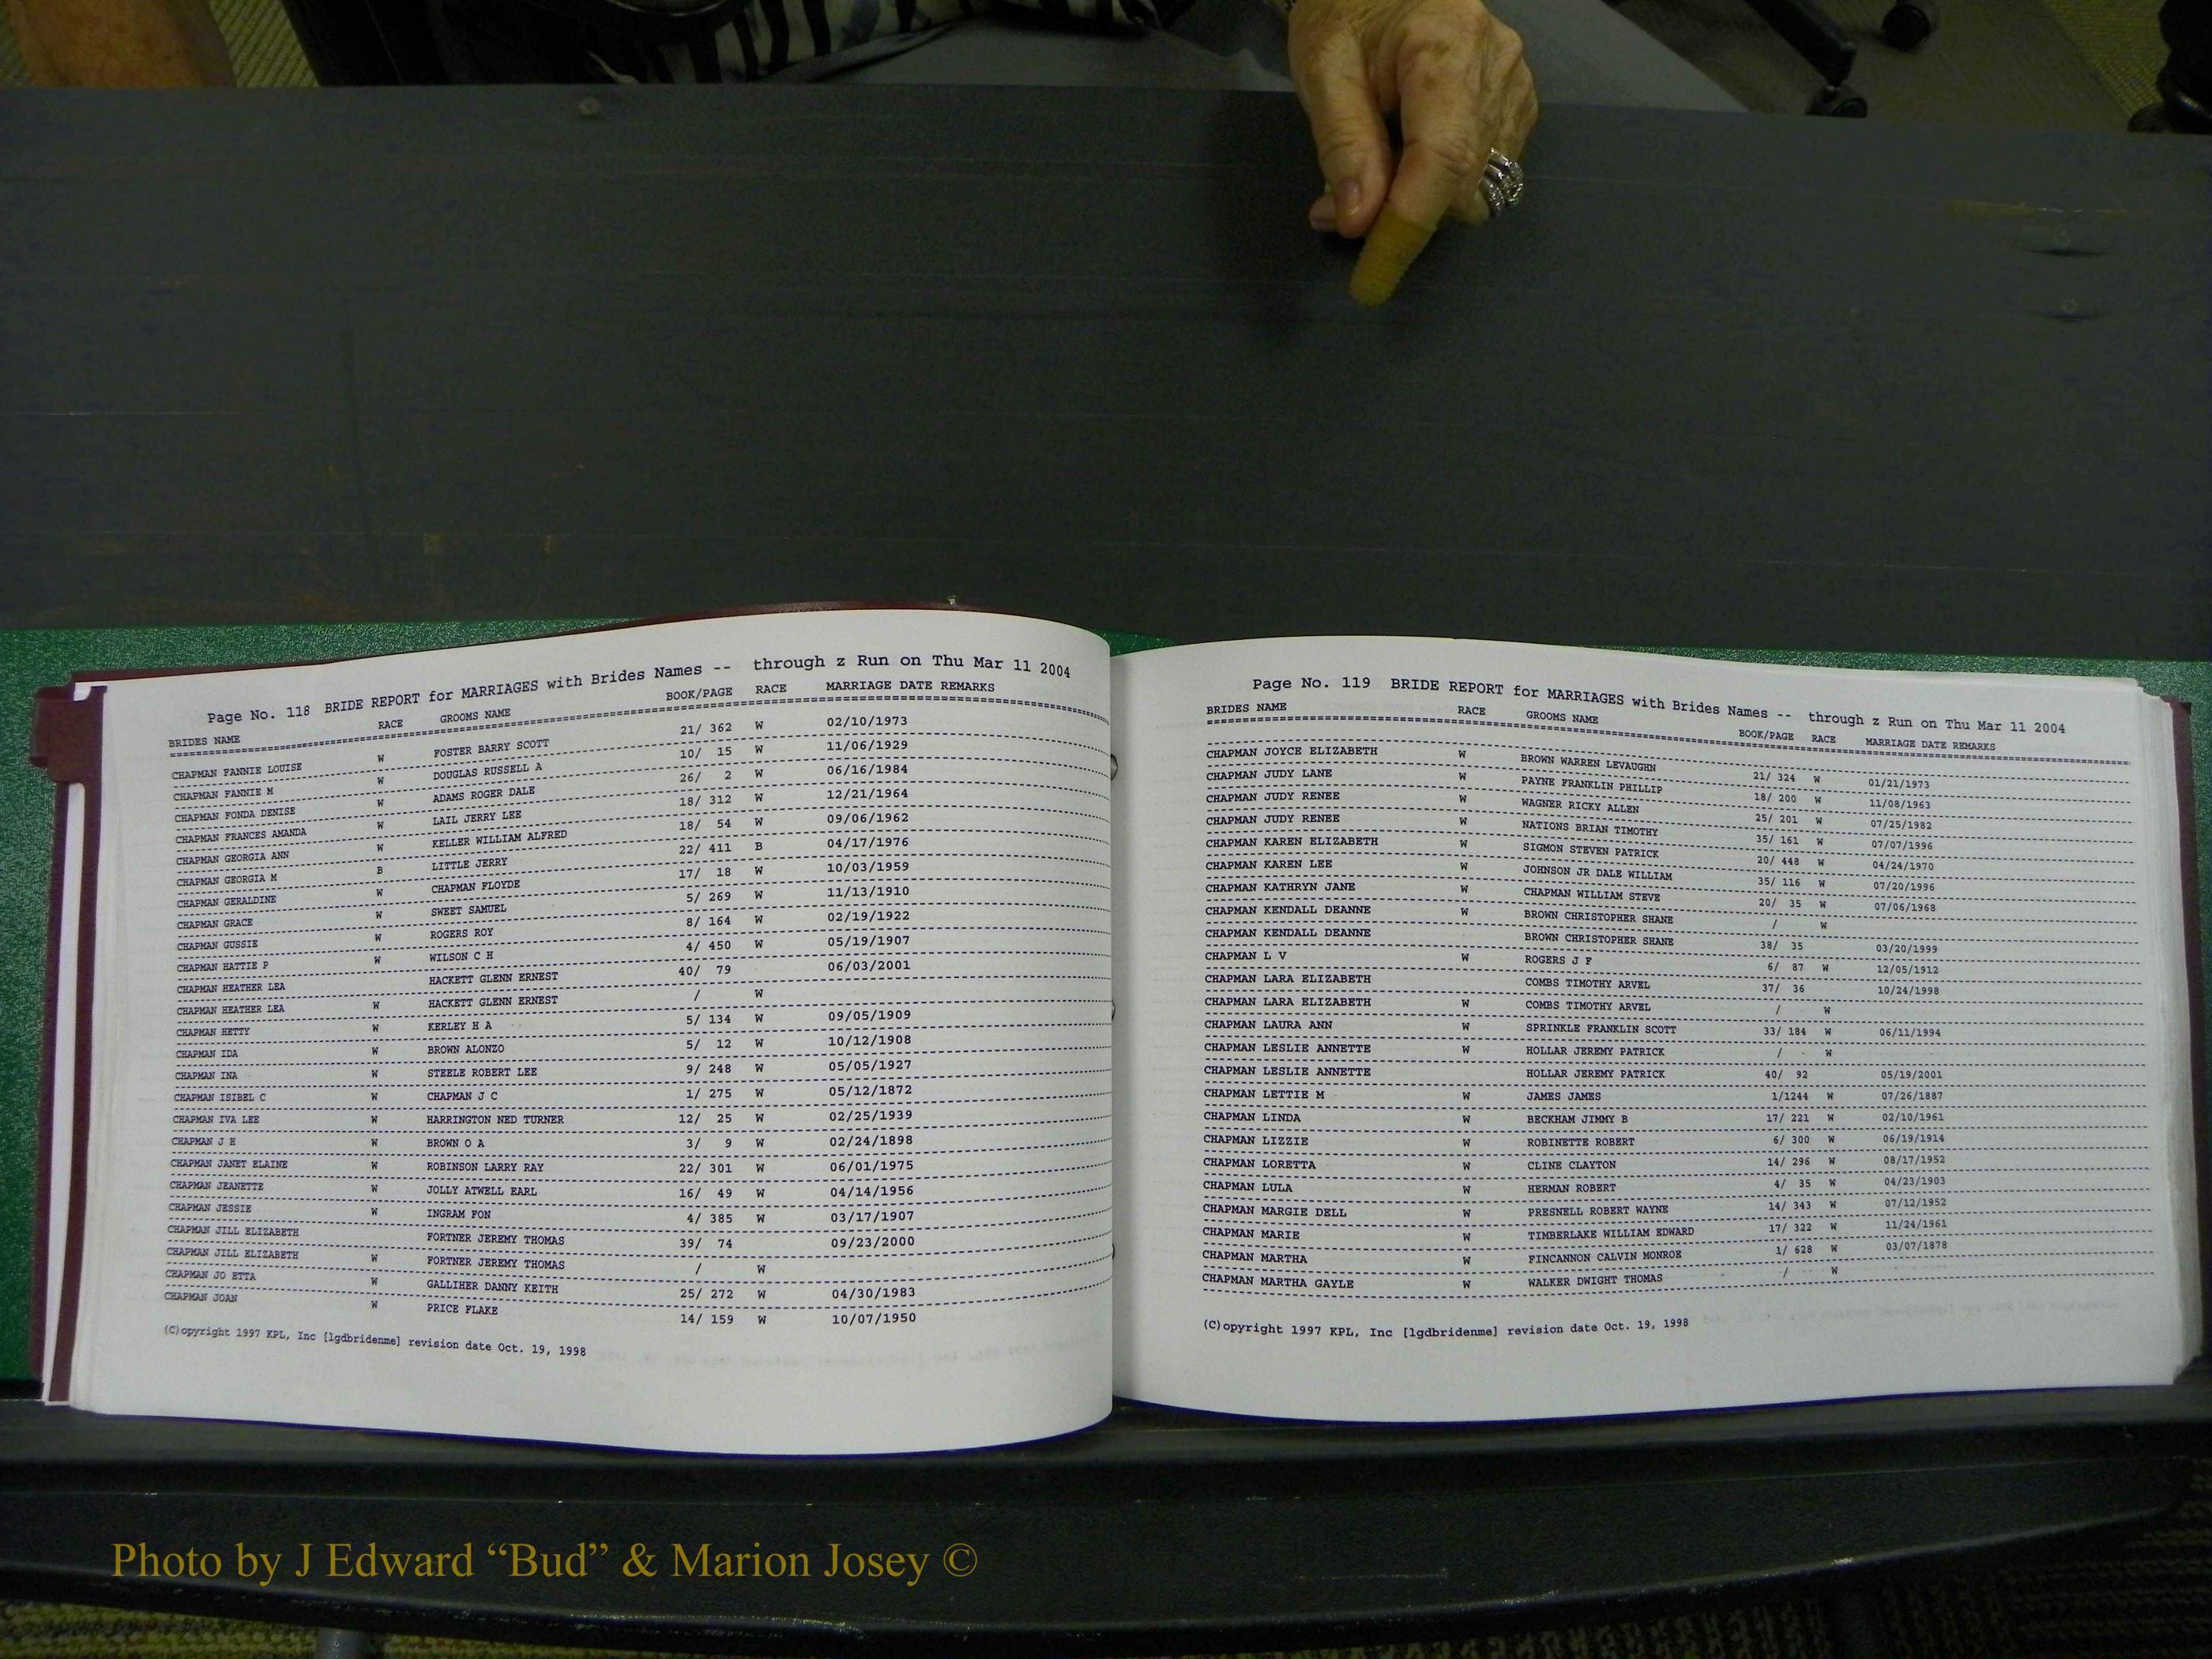 Page No. 118 BRIDE REPORT for MARRIAGES with Brides Names -- through z Run on Thu Mar 11 2004
BRIDES NAME RACE GROOMS NAME BOOK/PAGE RACE MARRIAGE DATE REMARKS
CHAPMAN FANNIE LOUISE W FOSTER BARRY SCOTT 21/ 362 W 02/10/1973
CHAPMAN FANNIE M W DOUGLAS RUSSELL A 10/ 15 W 11/06/1929
CHAPMAN FONDA DENISE W ADAMS ROGER DALE 26/ 2 W 06/16/1984
CHAPMAN FRANCES AMANDA W LAIL JERRY LEE 18/ 312 W 12/21/1964
CHAPMAN GEORGIA ANN W KELLER WILLIAM ALFRED 18/ 54 W 09/06/1962
CHAPMAN GEORGIA M B LITTLE JERRY 22/ 411 B 04/17/1976
CHAPMAN GERALDINE W CHAPMAN FLOYDE 17/ 18 W 10/03/1959
CHAPMAN GRACE W SWEET SAMUEL 5/ 269 W 11/13/1910
CHAPMAN GUSSIE W ROGERS ROY 8/ 164 W 02/19/1922
CHAPMAN HATTIE P W WILSON C H 4/ 450 W 05/19/1907
CHAPMAN HEATHER LEA HACKETT GLENN ERNEST 40/ 79 06/03/2001
CHAPMAN HEATHER LEA W HACKETT GLENN ERNEST / W
CHAPMAN HETTY W KERLEY H A 5/ 134 W 09/05/1909
CHAPMAN IDA W BROWN ALONZO 5/ 12 W 10/12/1908
CHAPMAN INA W STEELE ROBERT LEE 9/ 248 W 05/05/1927
CHAPMAN ISIBEL C W CHAPMAN J C 1/ 275 W 05/12/1872
CHAPMAN IVA LEE W HARRINGTON NED TURNER 12/ 25 W 02/25/1939
CHAPMAN J H W BROWN O A 3/ 9 W 02/24/1898
CHAPMAN JANET ELAINE W ROBINSON LARRY RAY 22/ 301 W 06/01/1975
CHAPMAN JEANETTE W JOLLY ATWELL EARL 16/ 49 W 04/14/1956
CHAPMAN JESSIE W INGRAM FON 4/ 385 W 03/17/1907
CHAPMAN JILL ELIZABETH FORTNER JEREMY THOMAS 39/ 74 09/23/2000
CHAPMAN JILL ELIZABETH W FORTNER JEREMY THOMAS / W
CHAPMAN JO ETTA W GALLIHER DANNY KEITH 25/ 272 W 04/30/1983
CHAPMAN JOAN W PRICE FLAKE 14/ 159 W 10/07/1950
(C)opyright 1997 KPL, Inc [lgdbridenme] revision date Oct. 19, 1998
Page No. 119 BRIDE REPORT for MARRIAGES with Brides Names -- through z Run on Thu Mar 11 2004
BRIDES NAME RACE GROOMS NAME BOOK/PAGE RACE MARRIAGE DATE REMARKS
CHAPMAN JOYCE ELIZABETH W BROWN WARREN LEVAUGHN 21/ 324 W 01/21/1973
CHAPMAN JUDY LANE W PAYNE FRANKLIN PHILLIP 18/ 200 W 11/08/1963
CHAPMAN JUDY RENEE W WAGNER RICKY ALLEN 25/ 201 W 07/25/1982
CHAPMAN JUDY RENEE W NATIONS BRIAN TIMOTHY 35/ 161 W 07/07/1996
CHAPMAN KAREN ELIZABETH W SIGMON STEVEN PATRICK 20/ 448 W 04/24/1970
CHAPMAN KAREN LEE W JOHNSON JR DALE WILLIAM 35/ 116 W 07/20/1996
CHAPMAN KATHRYN JANE W CHAPMAN WILLIAM STEVE 20/ 35 W 07/06/1968
CHAPMAN KENDALL DEANNE W BROWN CHRISTOPHER SHANE / W
CHAPMAN KENDALL DEANNE BROWN CHRISTOPHER SHANE 38/ 35 03/20/1999
CHAPMAN L V W ROGERS J F 6/ 87 W 12/05/1912
CHAPMAN LARA ELIZABETH COMBS TIMOTHY ARVEL 37/ 36 10/24/1998
CHAPMAN LARA ELIZABETH W COMBS TIMOTHY ARVEL / W
CHAPMAN LAURA ANN W SPRINKLE FRANKLIN SCOTT 33/ 184 W 06/11/1994
CHAPMAN LESLIE ANNETTE W HOLLAR JEREMY PATRICK / W
CHAPMAN LESLIE ANNETTE HOLLAR JEREMY PATRICK 40/ 92 05/19/2001
CHAPMAN LETTIE M W JAMES JAMES 1/1244 W 07/26/1887
CHAPMAN LINDA W BECKHAM JIMMY B 17/ 221 W 02/10/1961
CHAPMAN LIZZIE W ROBINETTE ROBERT 6/ 300 W 06/19/1914
CHAPMAN LORETTA W CLINE CLAYTON 14/ 296 W 08/17/1952
CHAPMAN LULA W HERMAN ROBERT 4/ 35 W 04/23/1903
CHAPMAN MARGIE DELL W PRESNELL ROBERT WAYNE 14/ 343 W 07/12/1952
CHAPMAN MARIE W TIMBERLAKE WILLIAM EDWARD 17/ 322 W 11/24/1961
CHAPMAN MARTHA W FINCANNON CALVIN MONROE 1/ 628 W 03/07/1878
CHAPMAN MARTHA GAYLE W WALKER DWIGHT THOMAS / W
(C)opyright 1997 KPL, Inc [lgdbridenme] revision date Oct. 19, 1998
Photo by J Edward “Bud” & Marion Josey ©